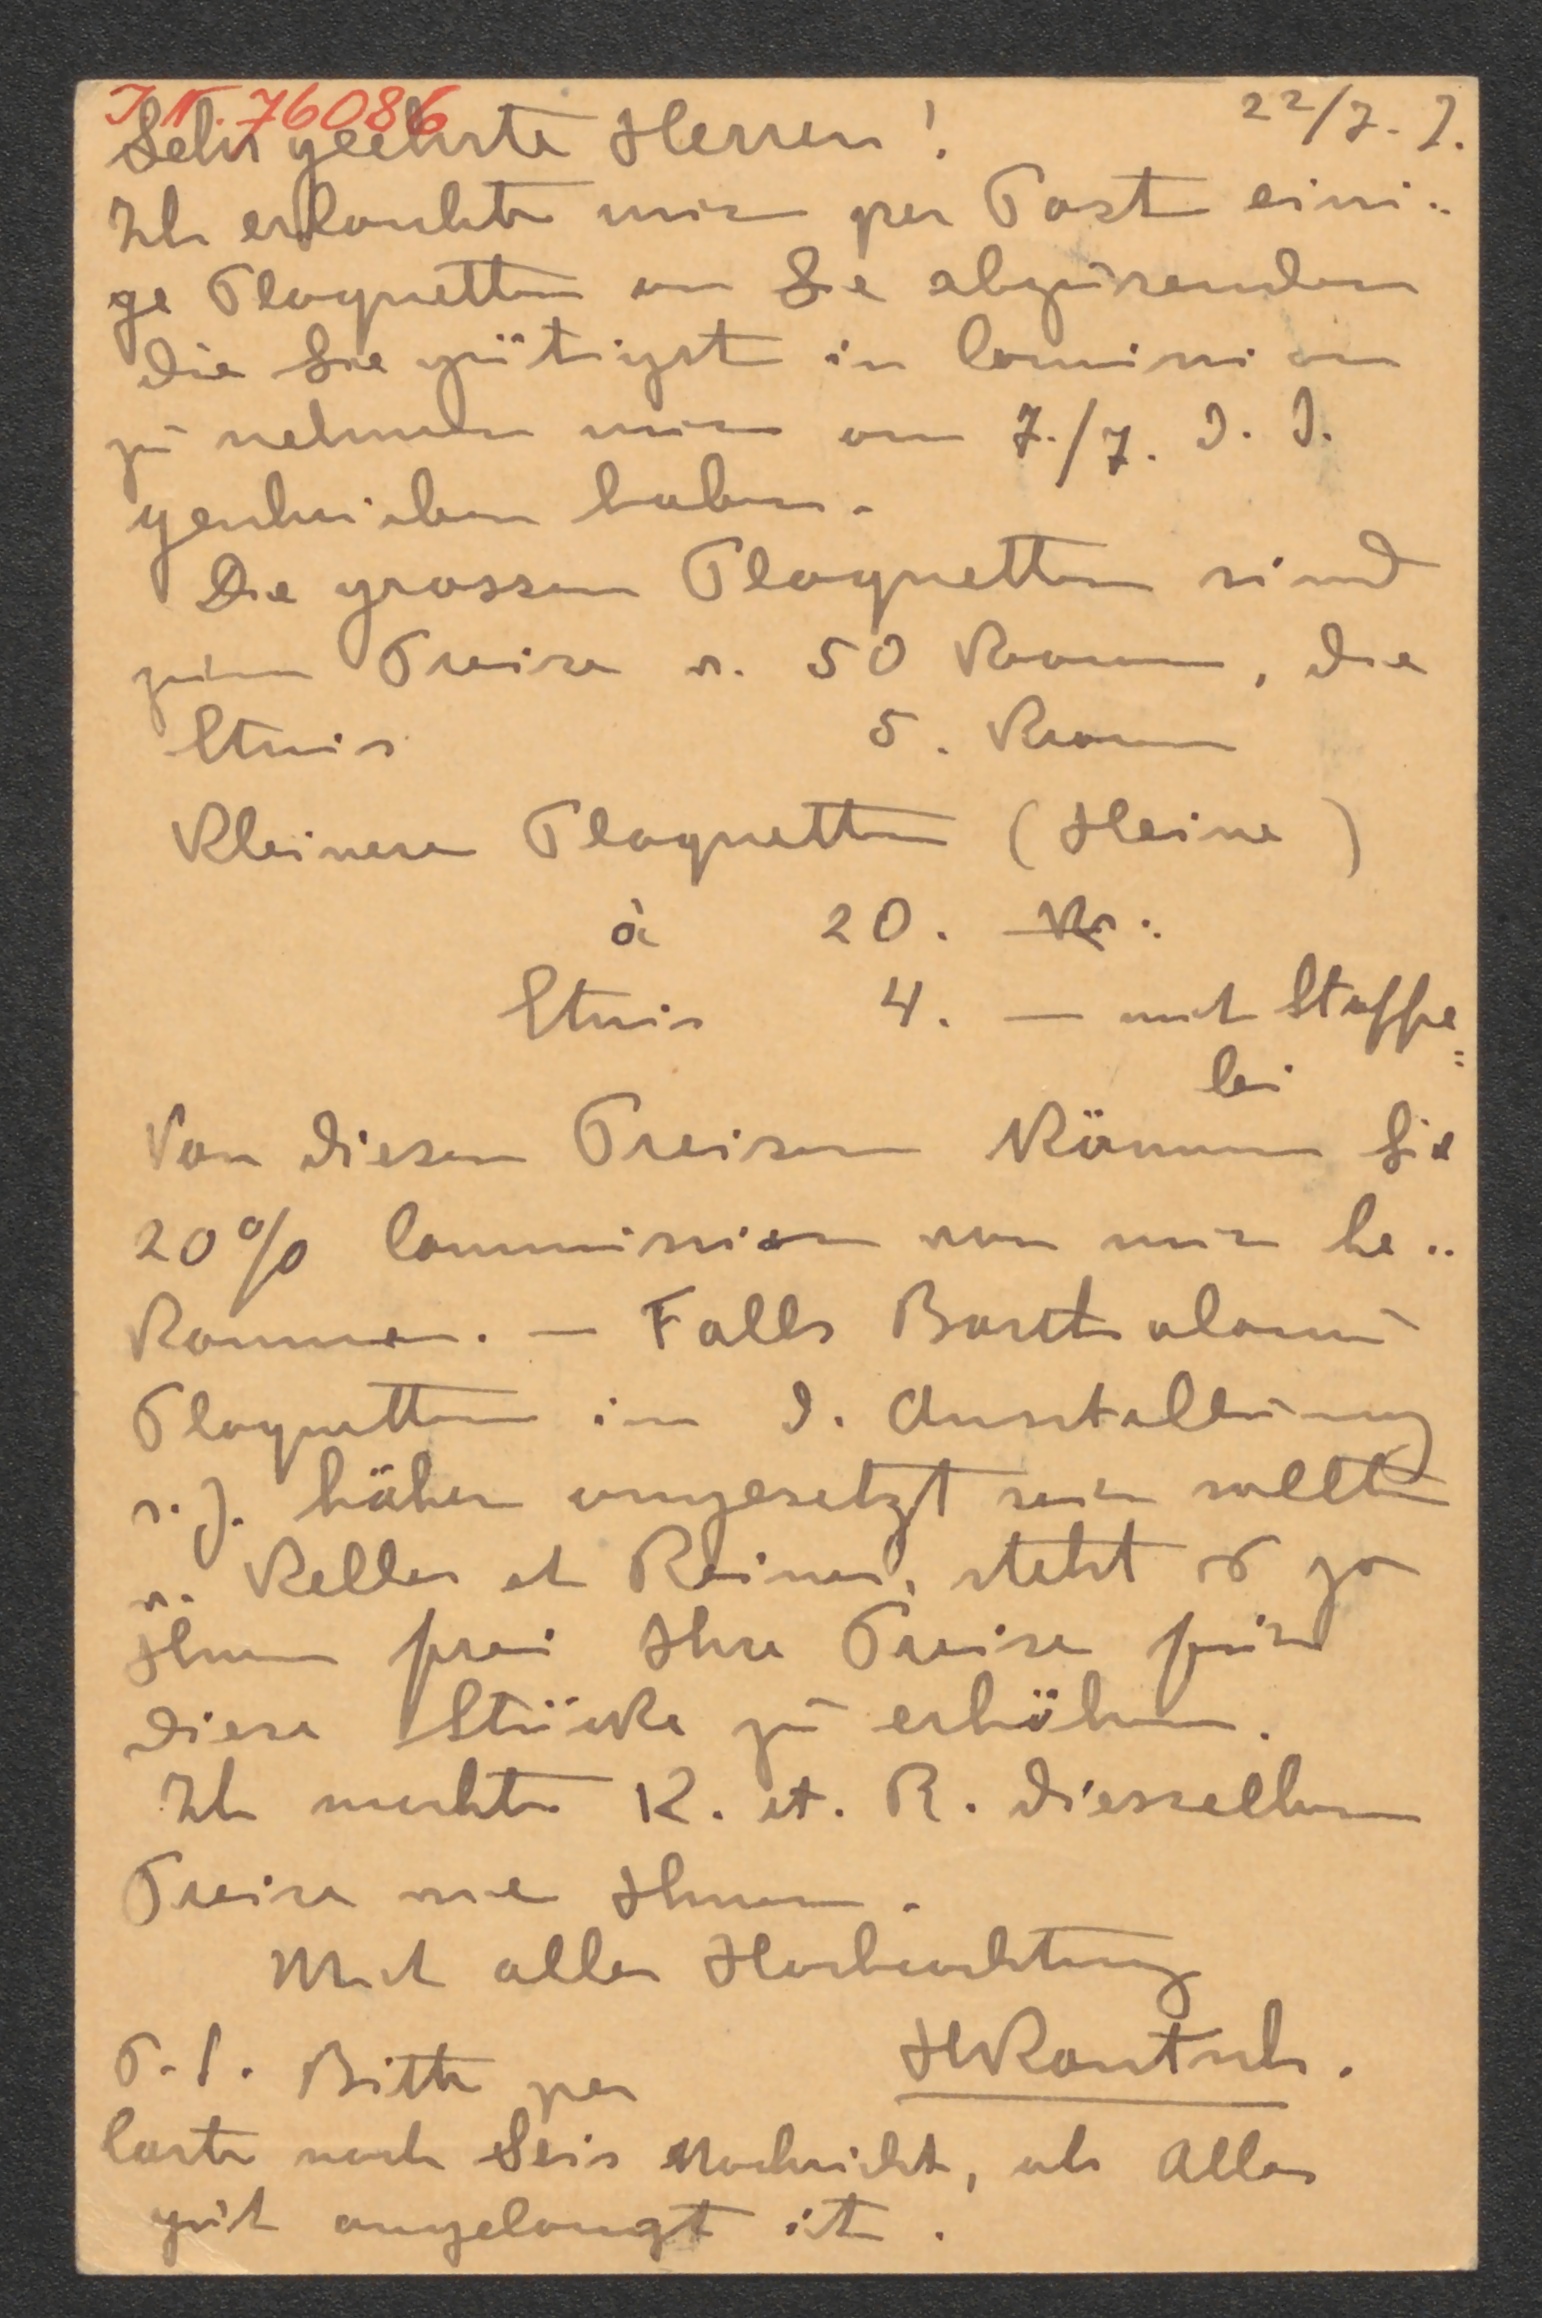 I.N. 76086
Sehr geehrte Herren! 22/7. J.
Ich erlaubte mir per Post eini-
ge Plaquetten an Sie abzusenden
die Sie gütigst in Comission
zu nehmen mir am 7./7. d. J.
geschrieben haben.
Die grossen Plaquetten sind
zum Preise v. 50 Kronen, die
Etuis 5. Kronen
Kleinere Plaquetten (Heine)
à 20. Kr.
Etuis 4. — mit Staffe=
lei
Von diesen Preisen können Sie
20% Commission von mir be-
kommen. — Falls Bartholomé
Plaquetten in d. Ausstellung
v. J. höher angesetzt sein sollten
v. Keller et Reiner, steht es ja
Ihnen frei Ihre Preise für
diese Stücke zu erhöhen.
Ich machte K. et. R. diesselben
Preise wie Ihnen.
Mit aller Hochachtung
HKautsch.
P.S. Bitte per
Carte nach Seis Nachricht, ob Alles
gut angelangt ist.